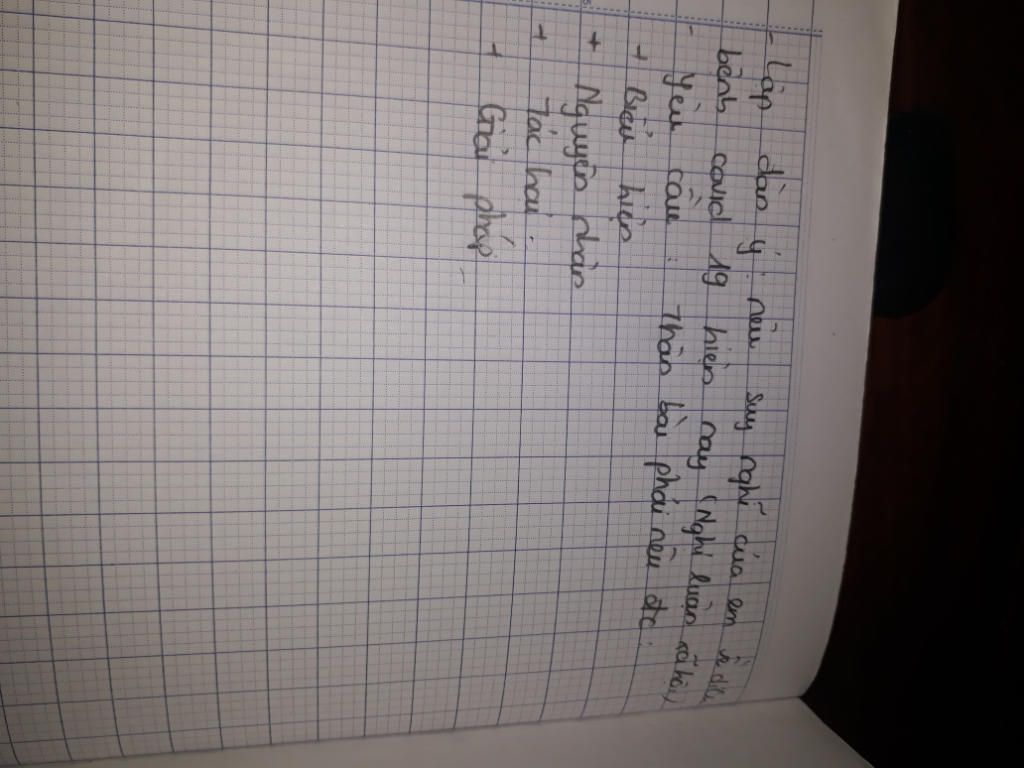 - Lập dàn ý: nêu suy nghĩ của em về dịch
bệnh covid 19 hiện nay (Nghị luận xã hội)
- Yêu cầu: Thân bài phải nêu đc:
+ Biểu hiện
+ Nguyên nhân
+ Tác hại
+ Giải pháp